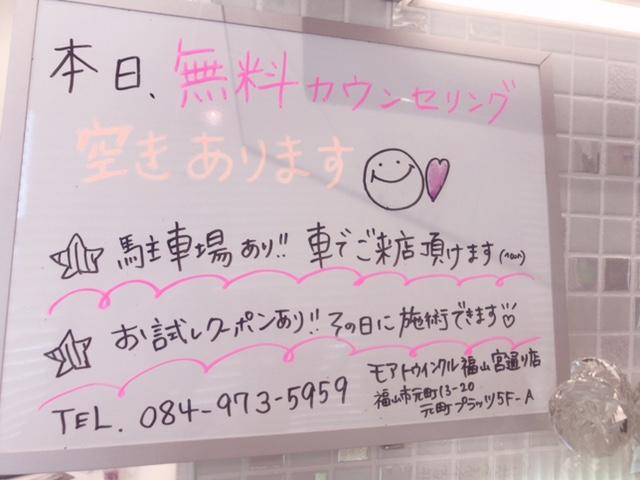 本日、無料カウンセリング
空きあります
駐車場あり!! 車でご来店頂けます(^o^)
お試しクーポンあり!! その日に施術できます♡
モアトゥインクル福山宮通り店
福山市元町13-20
元町プラッツ5F-A
TEL. 084-973-5959